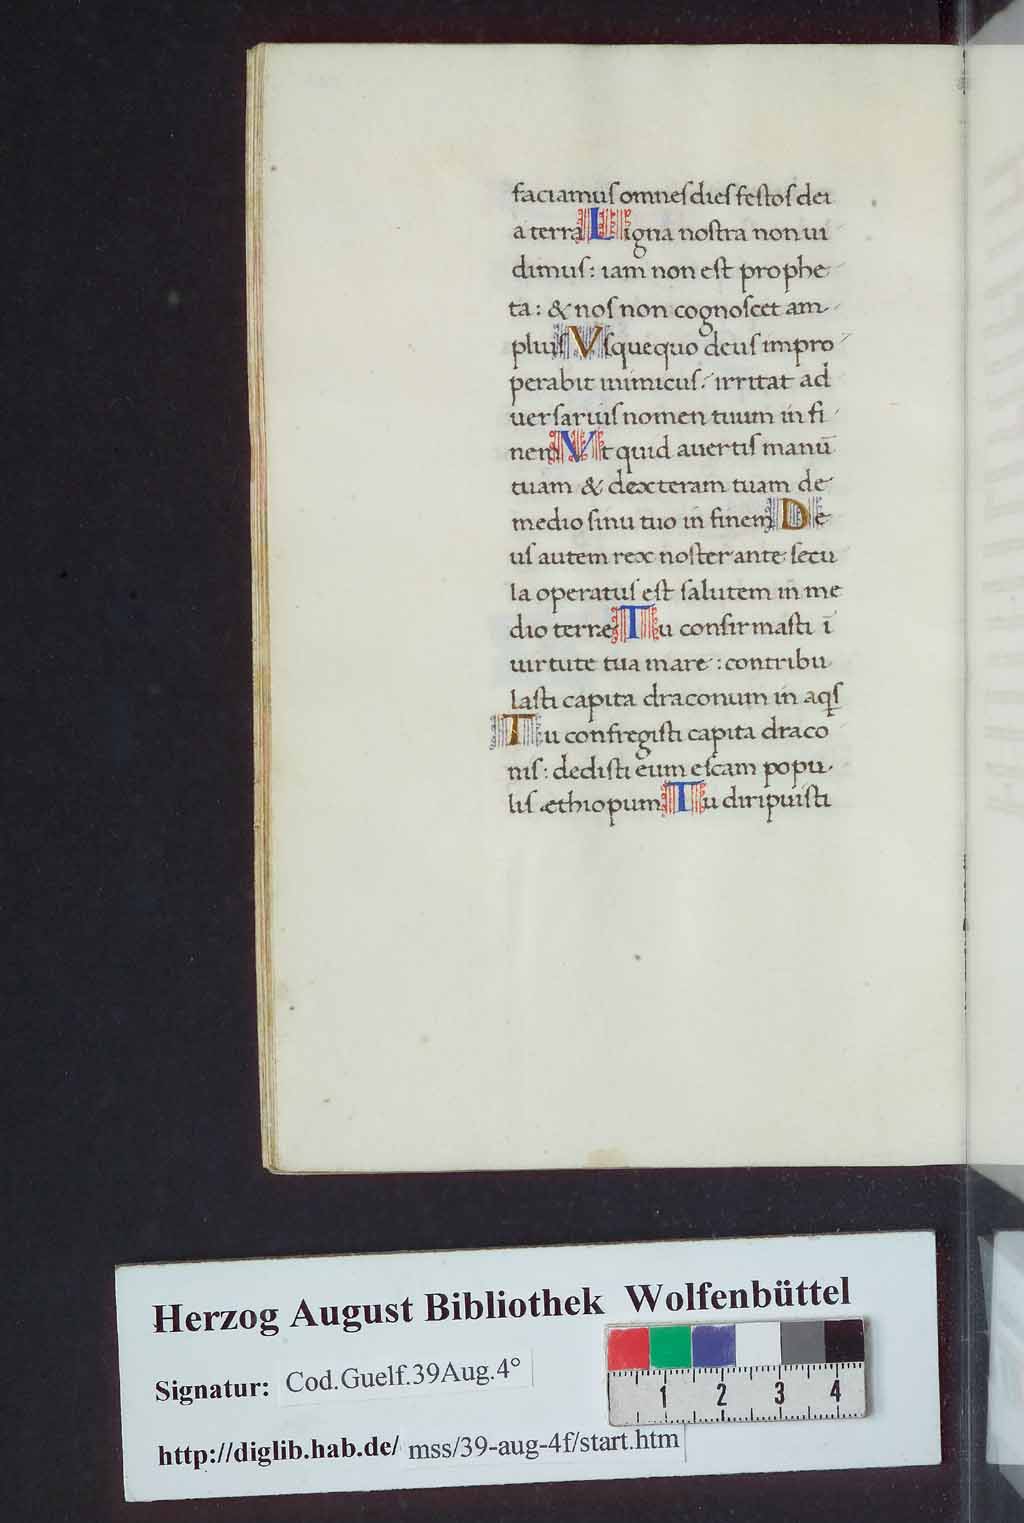 faciamuſ omneſ dieſ feſtoſ dei
a terra Ligna noſtra non ui
dimuſ: iam non eſt prophe
ta: & noſ non cognoſcet am
pliuſ Vſquequo deuſ impro
perabit inimicuſ: irritat ad
uerſariuſ nomen tuum in fi
nem Vt quid auertiſ manū
tuam & dexteram tuam de
medio ſinu tuo in finem De
uſ autem rex noſter ante ſecu
la operatuſ eſt ſalutem in me
dio terræ Tu confirmaſti ī
uirtute tua mare: contribu
laſti capita draconum in aqſ
Tu confregiſti capita draco
niſ: dediſti eum eſcam popu
liſ æthiopum Tu diripuiſti
Herzog August Bibliothek Wolfenbüttel
Signatur: Cod.Guelf.39Aug.4°
http://diglib.hab.de/ mss/39-aug-4f/start.htm
1 2 3 4